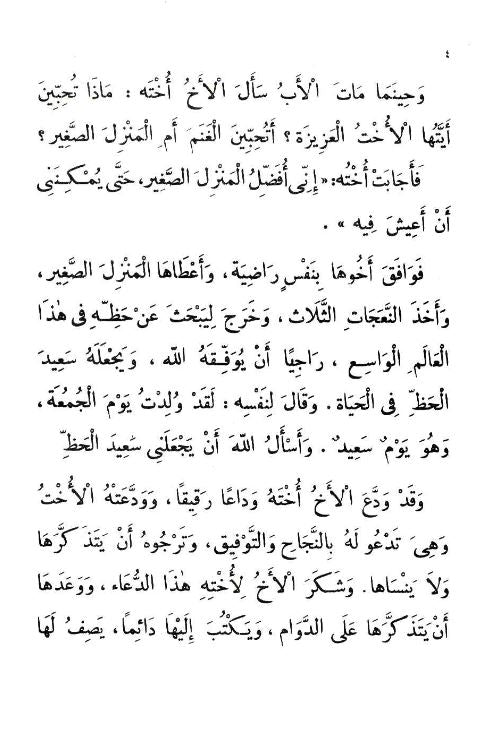 ٤
وَحِينَمَا مَاتَ الْأَبُ سَأَلَ الْأَخُ أُخْتَه : مَاذَا تُحِبِّينَ
أَيَّتُهَا الْأُخْتُ الْعَزِيزَة ؟ أَتُحِبِّينَ الْغَنَمَ أَمِ الْمَنْزِلَ الصَّغِير ؟
فَأَجَابَتْ أُخْتُه: « إِنِّى أُفَضِّلُ الْمَنْزِلَ الصَّغِير، حَتَّى يُمْكِنَنِى
أَنْ أَعِيشَ فِيه » .
فَوَافَقَ أَخُوهَا بِنَفْسٍ رَاضِيَة ، وَأَعْطَاهَا الْمَنْزِلَ الصَّغِير ،
وَأَخَذَ النَّعَجَاتِ الثَّلَاث ، وَخَرَجَ لِيَبْحَثَ عَنْ حَظِّه فِى هٰذَا
الْعَالَمِ الْوَاسِع ، رَاجِيًا أَنْ يُوَفِّقَهُ الله ، وَيَجْعَلَهُ سَعِيدَ
الْحَظِّ فِى الْحَيَاة . وَقَالَ لِنَفْسِه : لَقَدْ وُلِدْتُ يَوْمَ الْجُمُعَة ،
وَهُوَ يَوْمٌ سَعِيدٌ . وَأَسْأَلُ اللهَ أَنْ يَجْعَلَنِى سَعِيدَ الْحَظِّ
وَقَدْ وَدَّعَ الْأَخُ أُخْتَهُ وَدَاعًا رَقِيقًا ، وَوَدَّعَتْهُ الْأُخْتُ
وَهِىَ تَدْعُو لَهُ بِالنَّجَاحِ وَالتَّوْفِيق ، وَتَرْجُوهُ أَنْ يَتَذَكَّرَهَا
وَلَا يَنْسَاهَا. وَشَكَرَ الْأَخُ لِأُخْتِهِ هٰذَا الدُّعَاء ، وَوَعَدَهَا
أَنْ يَتَذَكَّرَهَا عَلَى الدَّوَام ، وَيَكْتُبَ إِلَيْهَا دَائِمًا، يَصِفُ لَهَا